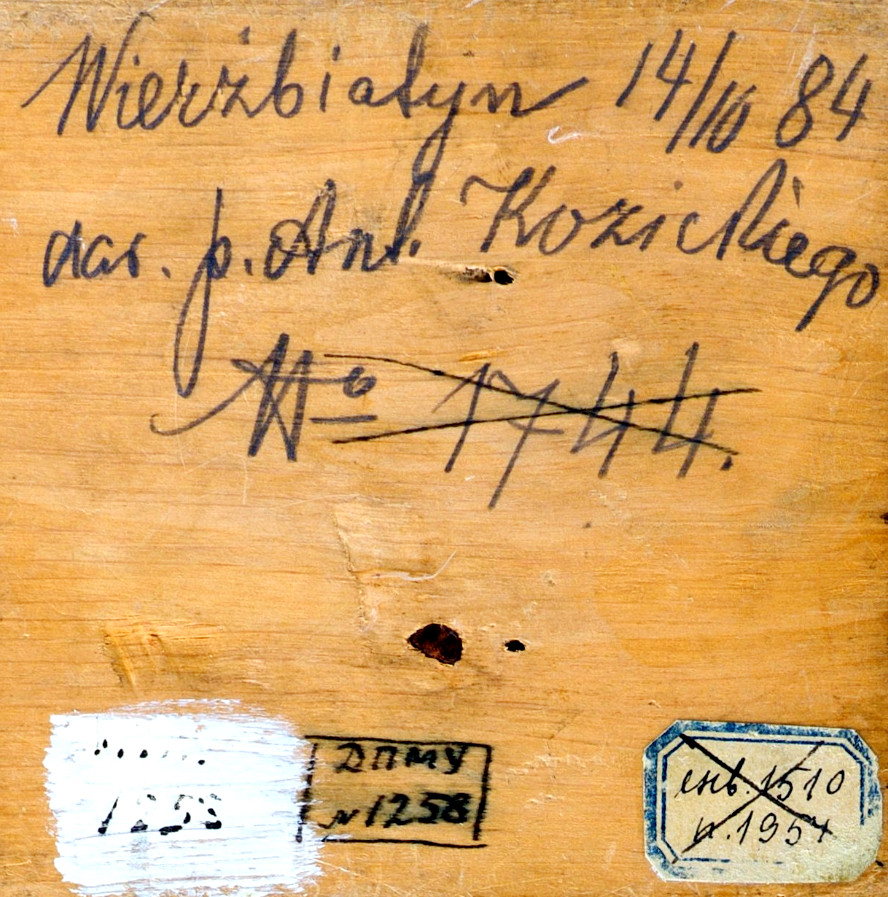 Wierżbiatyn 14/10 84
dar. p. Ant. Kozickiego
No 1744.
1258
ДПМУ
№ 1258
инв. 1510
п. 1954